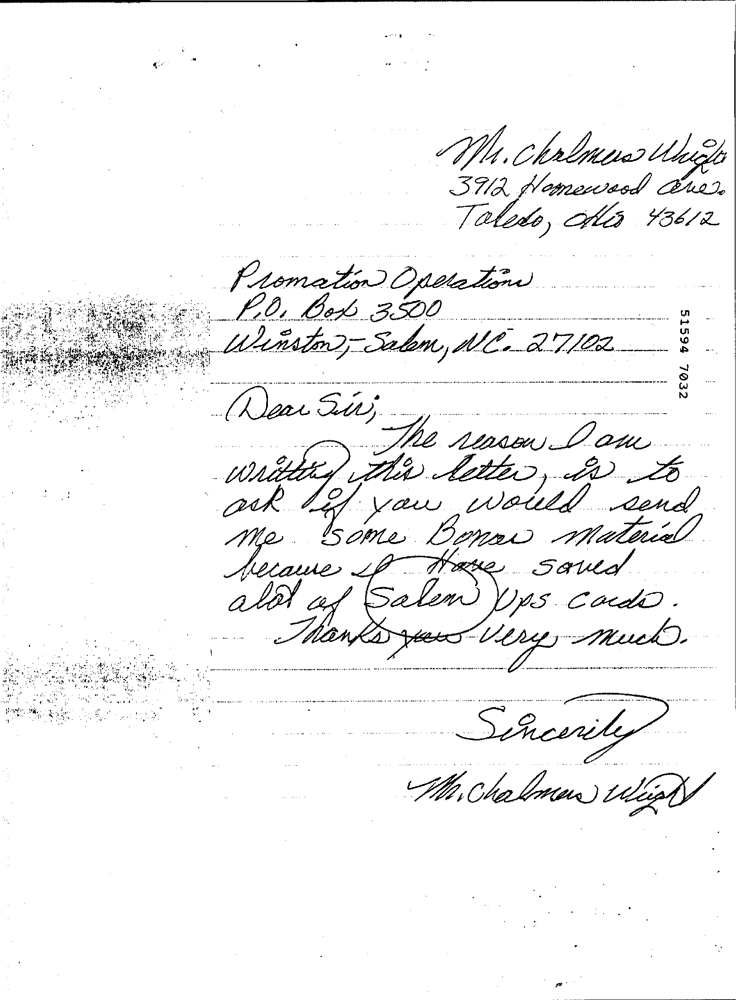 Mr. Chalmers Wright
3912 Homewood Ave.
Toledo, Ohio 43612
Promation Operations
P.O. Box 3500
Winston,-Salem, N.C. 27102
51594 7032
Dear Sir;
The reason I am
writting this letter, is to
ask if you would send
me some Bonus material
because I Have saved
alot of Salem Ups cards.
Thanks you very much.
Sincerily
Mr. Chalmers Wright